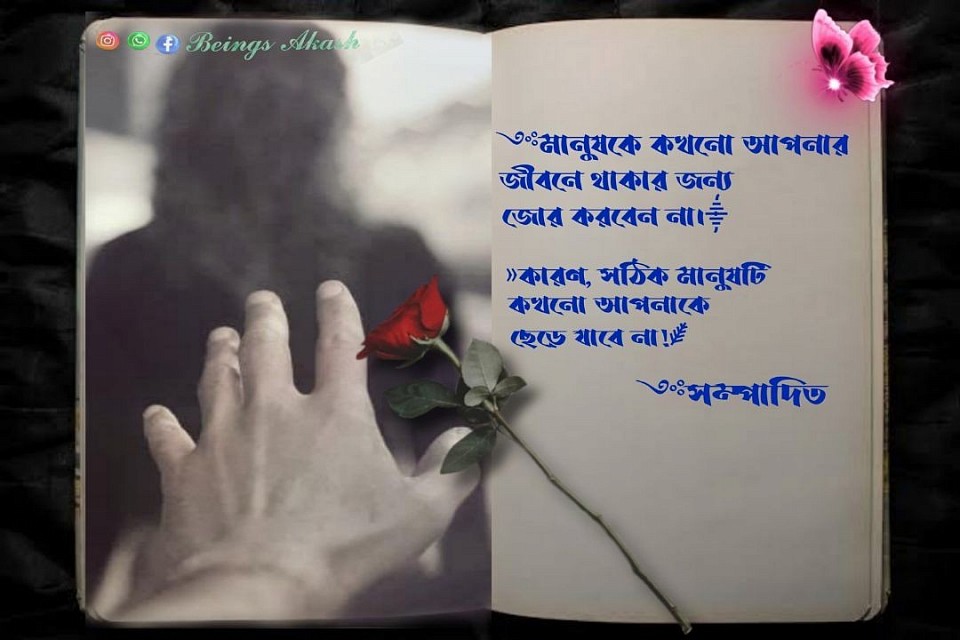 Beings Akash
মানুষকে কখনো আপনার
জীবনে থাকার জন্য
জোর করবেন না।
»কারণ, সঠিক মানুষটি
কখনো আপনাকে
ছেড়ে যাবে না!
সম্পাদিত